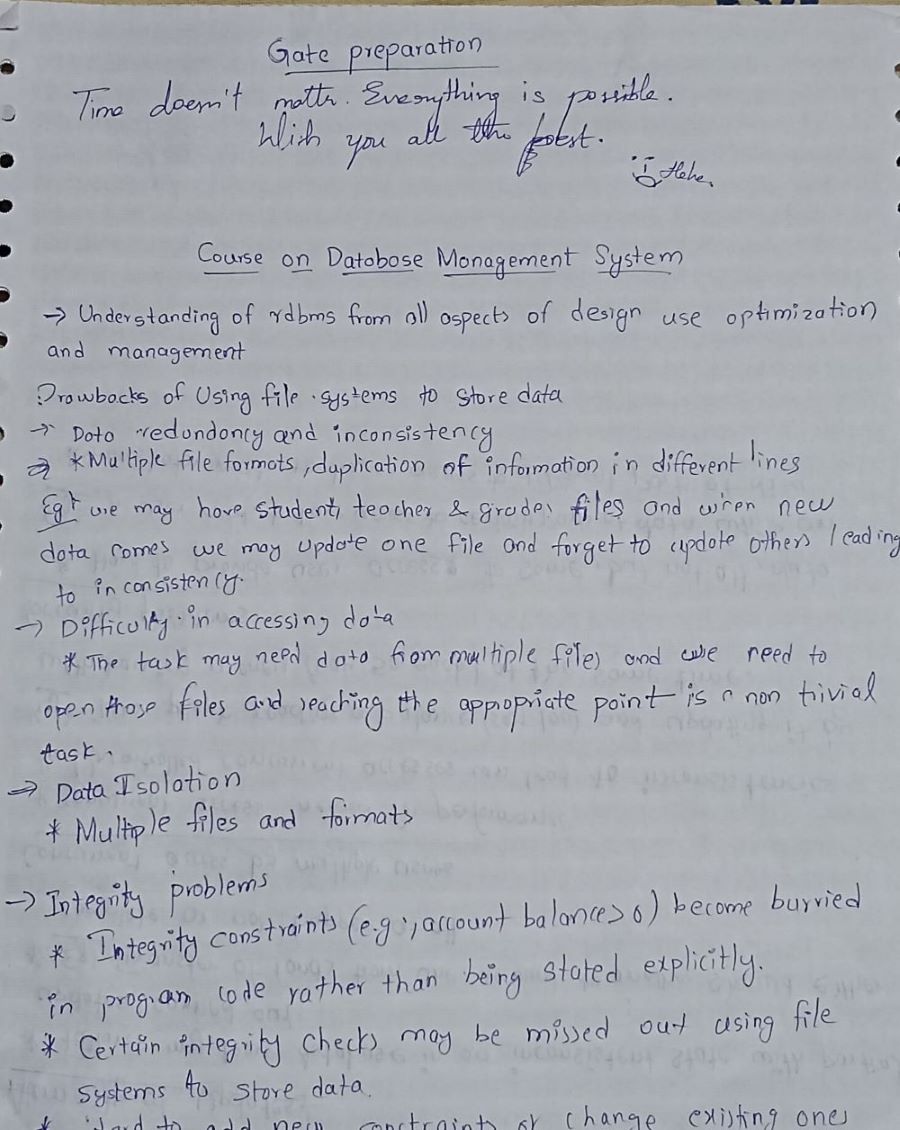 Gate preparation
Time doesn't matter. Everything is possible.
Wish you all the best.
Hehe.
Course on Database Management System
→ Understanding of rdbms from all aspects of design use optimization
and management
Drawbacks of Using file systems to store data
→ Data redundancy and inconsistency
→ * Multiple file formats, duplication of information in different lines
Eg: we may have student, teacher & grades files and when new
data comes we may update one file and forget to update others leading
to inconsistency.
→ Difficulty in accessing data
* The task may need data from multiple files and we need to
open those files and reaching the appropriate point is a non trivial
task.
→ Data Isolation
* Multiple files and formats
→ Integrity problems
* Integrity constraints (e.g:, account balance > 0) become burried
in program code rather than being stated explicitly.
* Certain integrity checks may be missed out using file
systems to store data.
* Hard to add new constraints or change existing ones